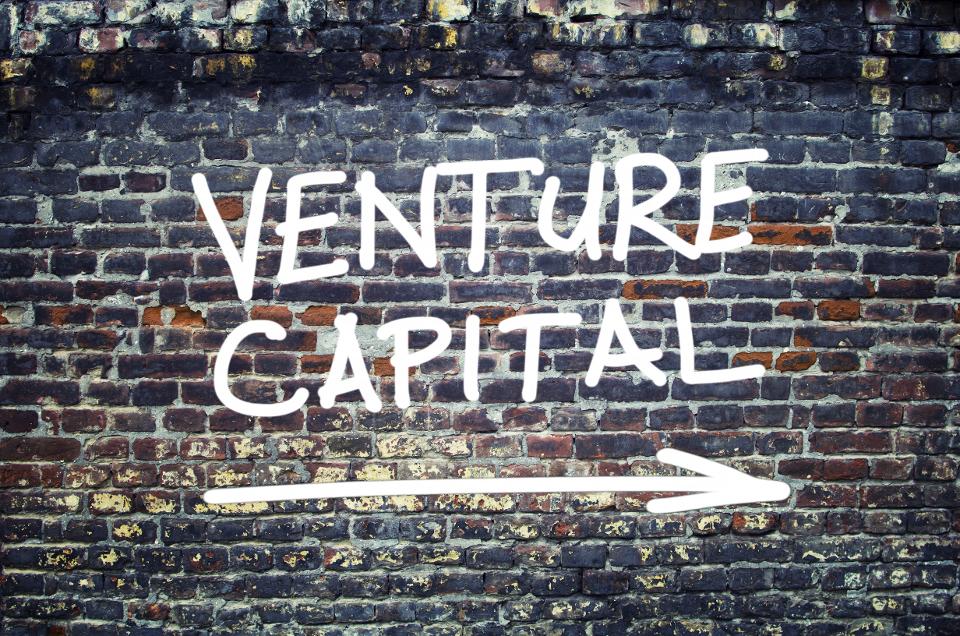 VENTURE
CAPITAL